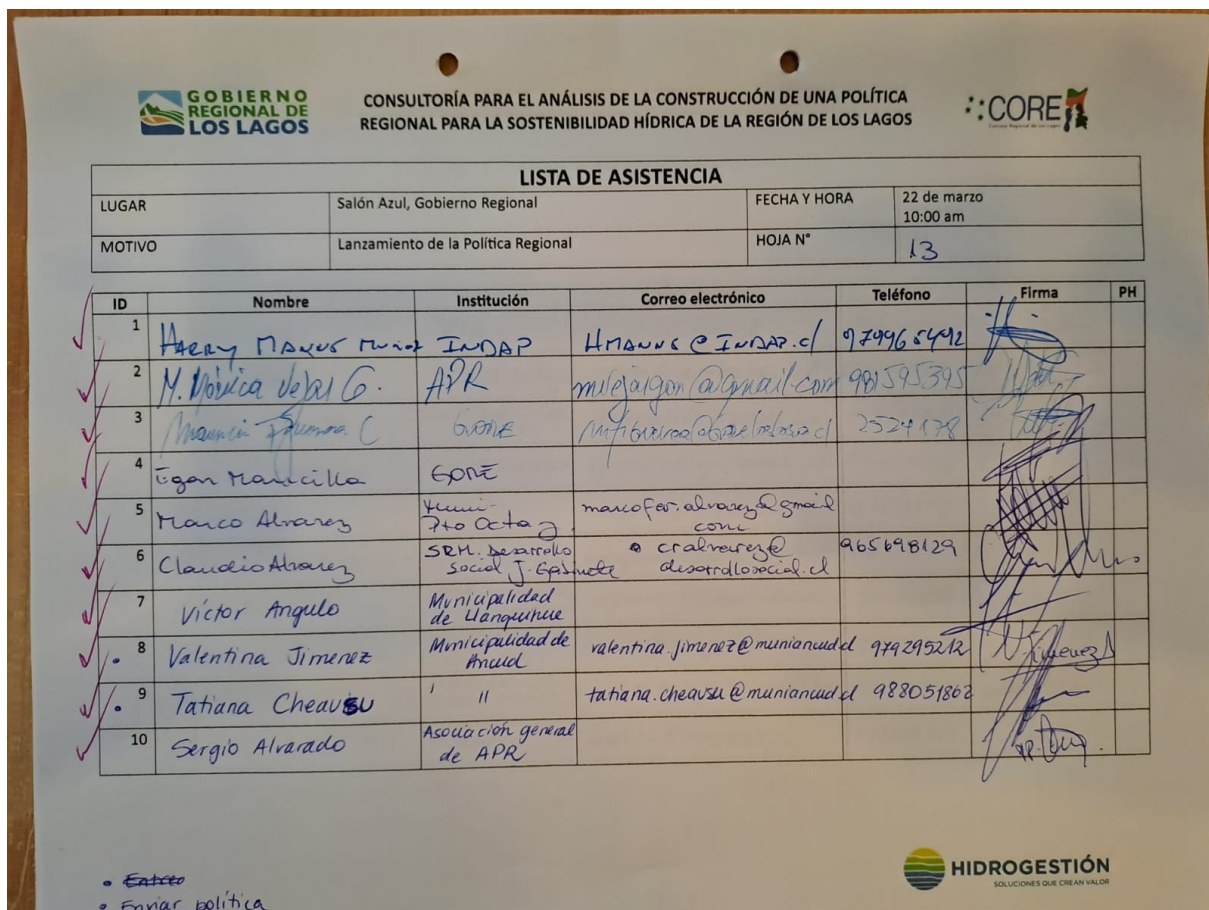 GOBIERNO
REGIONAL DE
LOS LAGOS
CONSULTORÍA PARA EL ANÁLISIS DE LA CONSTRUCCIÓN DE UNA POLÍTICA
REGIONAL PARA LA SOSTENIBILIDAD HÍDRICA DE LA REGIÓN DE LOS LAGOS
CORE
LISTA DE ASISTENCIA
LUGAR Salón Azul, Gobierno Regional FECHA Y HORA 22 de marzo
10:00 am
MOTIVO Lanzamiento de la Política Regional HOJA N° 13
ID Nombre Institución Correo electrónico Teléfono Firma PH
1 HARRY MANUS MUÑOZ INDAP HMANUS@INDAP.cl
2 M. Mónica Vejar G. APR mvejargon@gmail.com 981595395
3 GORE 2524178
4 Egon Mancilla GORE
5 Marco Alvarez Muni- marcofer.alvarez@gmail
Pto Octay com
6 Claudio Alvarez SRM. Desarrollo cralvarez@ 965698129
Social J. Gabinete desarrollosocial.cl
7 Víctor Angulo Municipalidad
de Llanquihue
8 Valentina Jimenez Municipalidad de valentina.jimenez@muniancud.cl 979295212 V. Jimenez
Ancud
9 Tatiana Cheausu " tatiana.cheausu@muniancud.cl 988051862
10 Sergio Alvarado Asociación general
de APR
HIDROGESTIÓN
SOLUCIONES QUE CREAN VALOR
• Enviar política